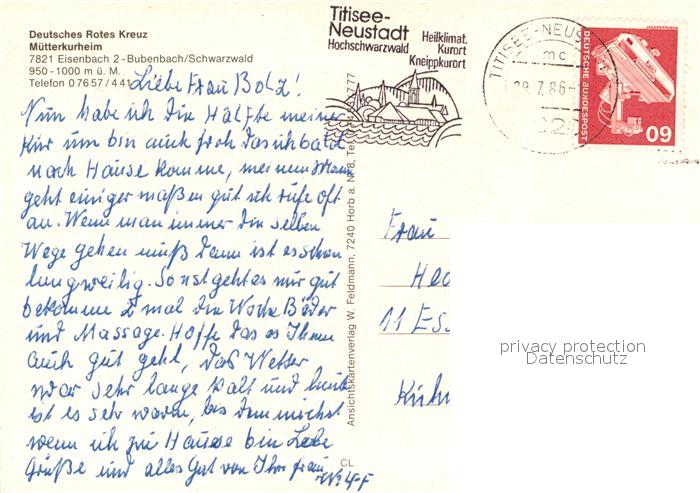 Deutsches Rotes Kreuz
Mütterkurheim
7821 Eisenbach 2-Bubenbach/Schwarzwald
950-1000 m ü. M.
Telefon 07657/441
Liebe Frau Bolz!
Nun habe ich die Hälfte meiner
Kur um bin auch froh das ich bald
nach Hause komme, meinem Mann
geht einiger maßen gut ich rufe oft
an. Wenn man immer die selben
Wege gehen muß dann ist es schon
langweilig. Sonst geht es mir gut
bekomme 2 mal die Woche Bäder
und Massage. Hoffe das es Ihnen
auch gut geht, das Wetter
war sehr lange kalt und heute
ist es sehr warm, bis demnächst
wenn ich zu Hause bin Liebe
Grüße und alles Gut von Ihr Frau
Titisee-
Neustadt
Hochschwarzwald
Heilklimat.
Kurort
Kneippkurort
TITISEE-NEUS
mc
28.7.86
DEUTSCHE BUNDESPOST
60
Ansichtskartenverlag W. Feldmann, 7240 Horb a. N. 8, Tel.
777
CL
Frau
Hed
11 Es
Kühn
privacy protection
Datenschutz